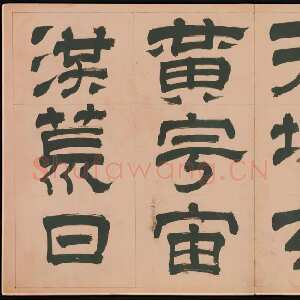 黃宇宙
洪荒日
Shufawang.CN